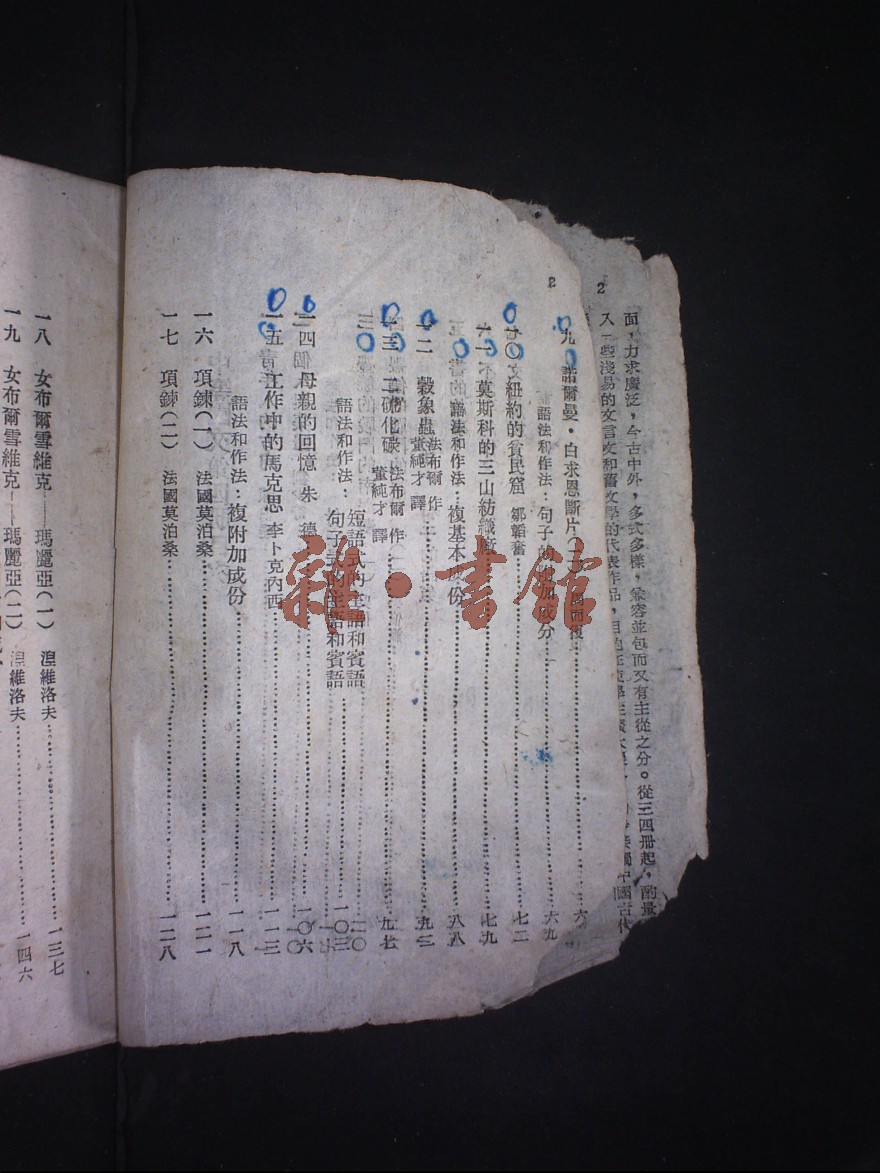 面，力求廣泛，今古中外，多式多樣，兼容並包而又有主從之分。從三四冊起，酌量
入一些淺易的文言文和舊文學的代表作品，目的在
中國古代
2
2
九 諾爾曼·白求恩斷片（二） 周而復……六
語法和作法：句子的附加成分……六九
一〇 紐約的貧民窟 鄒韜奮……七二
一一 莫斯科的三山紡織廠……七九
語法和作法：複基本成份……八八
一二 穀象蟲 法布爾 作 董純才 譯……九二
一三 二硫化碳 法布爾 作 董純才 譯……九七
語法和作法： 短語式的主語和賓語 句子式的主語和賓語……一〇三
一四 母親的回憶 朱 德……一〇六
一五 工作中的馬克思 李卜克內西……一一三
語法和作法：複附加成份……一一八
一六 項鍊（一） 法國莫泊桑……一二一
一七 項鍊（二） 法國莫泊桑……一二八
一八 女布爾雪維克——瑪麗亞（一） 湼維洛夫……一三七
一九 女布爾雪維克——瑪麗亞（二） 湼維洛夫……一四六
雜·書館